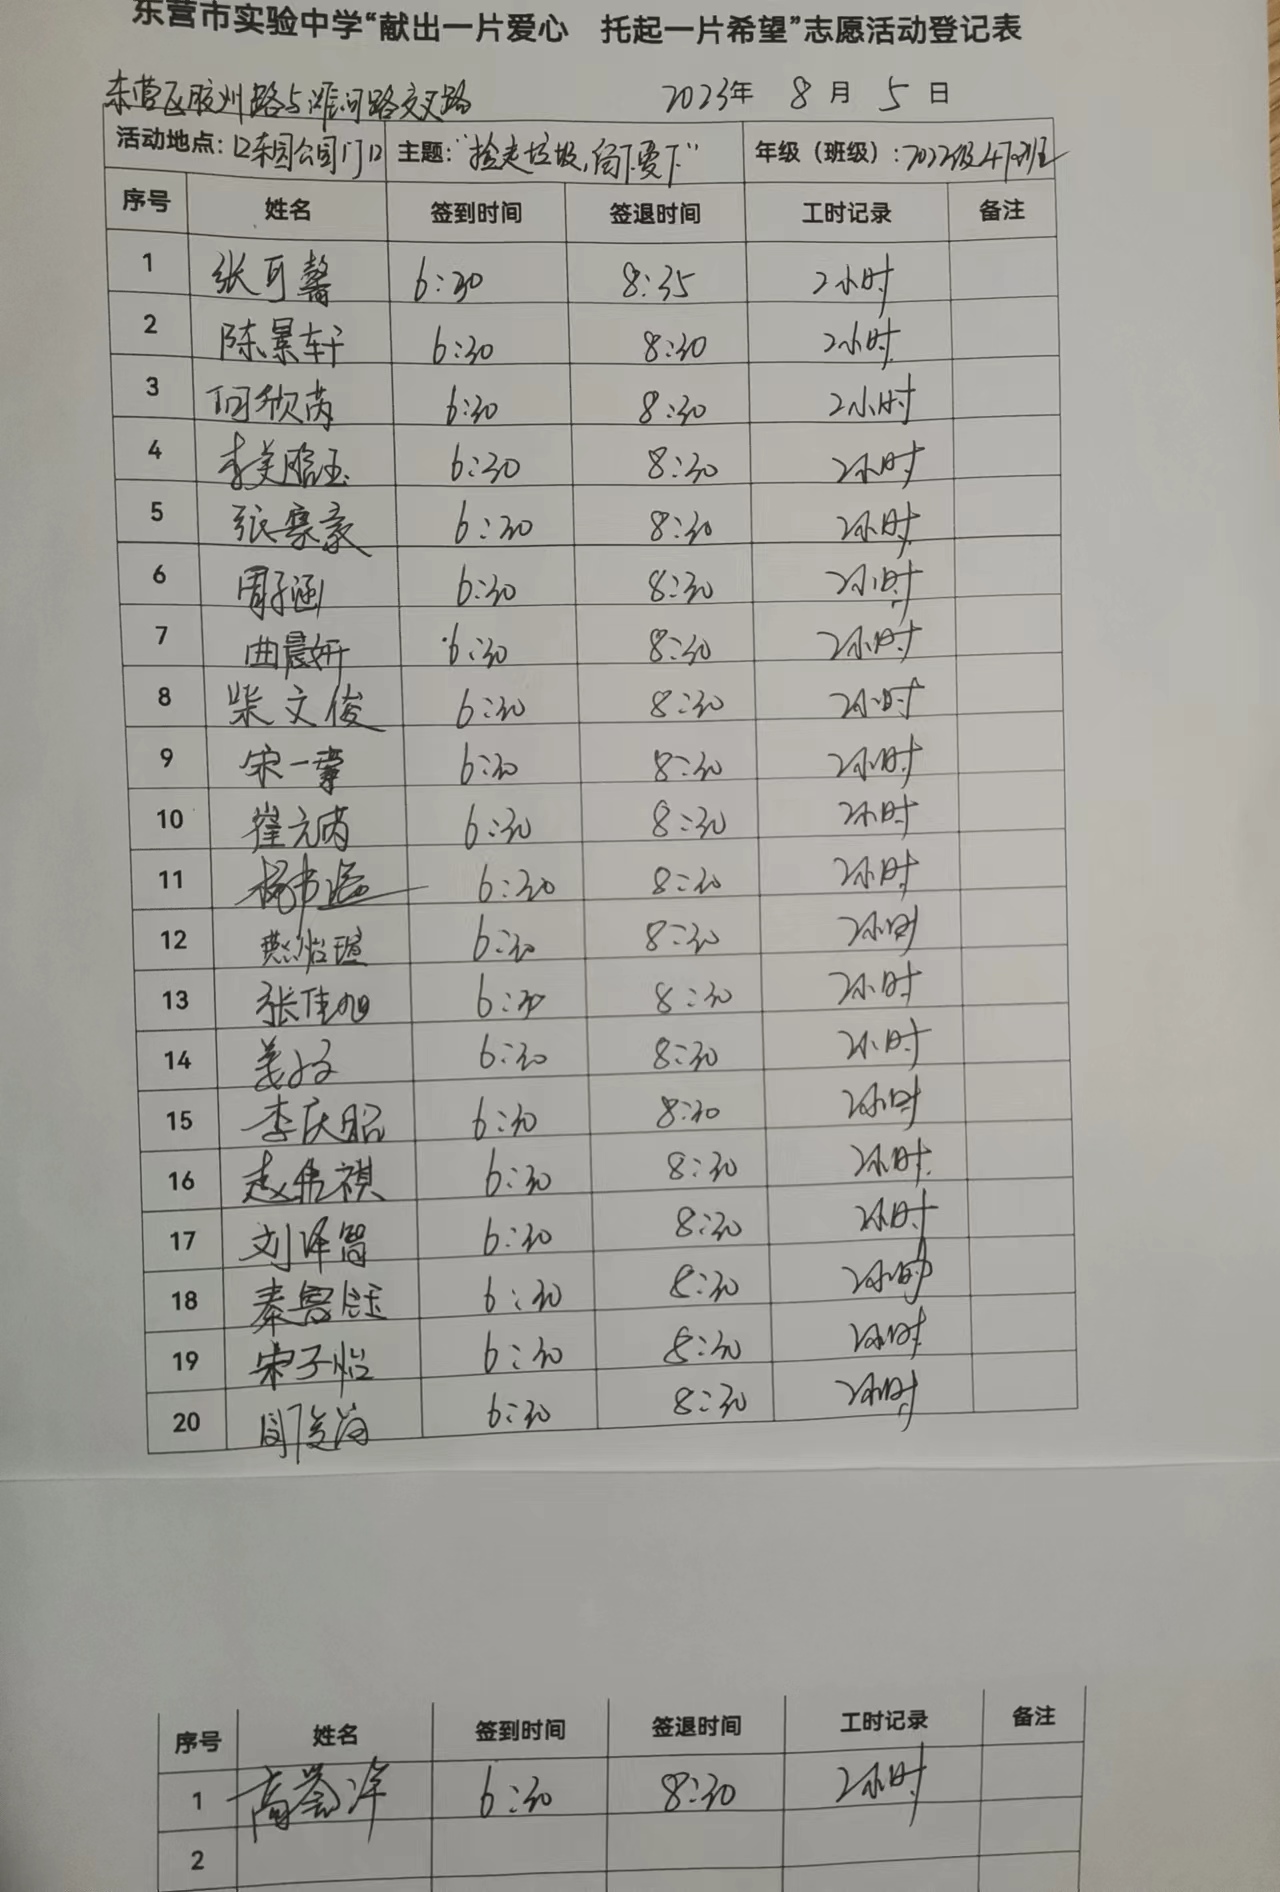 东营市实验中学“献出一片爱心 托起一片希望”志愿活动登记表
东营区胶州路与淮河路交叉路 2023年 8 月 5 日
活动地点: 口东园公园门口 主题: “捡走垃圾, 留下爱” 年级（班级）: 2022级4班
序号 姓名 签到时间 签退时间 工时记录 备注
1 张可馨 6:30 8:35 2小时
2 陈景轩 6:30 8:30 2小时
3 欣芮 6:30 8:30 2小时
4 李美熠玉 6:30 8:30 2小时
5 张赛豪 6:30 8:30 2小时
6 周子涵 6:30 8:30 2小时
7 曲晨妍 6:30 8:30 2小时
8 柴文俊 6:30 8:30 2小时
9 宋一 6:30 8:30 2小时
10 崔元芮 6:30 8:30 2小时
11 杨书 6:30 8:30 2小时
12 燕怡瑄 6:30 8:30 2小时
13 张佳旭 6:30 8:30 2小时
14 姜 6:30 8:30 2小时
15 李庆昭 6:30 8:30 2小时
16 赵伟祺 6:30 8:30 2小时
17 刘泽智 6:30 8:30 2小时
18 秦鲁钰 6:30 8:30 2小时
19 宋子怡 6:30 8:30 2小时
20 闫 6:30 8:30 2小时
序号 姓名 签到时间 签退时间 工时记录 备注
1 高荟洋 6:30 8:30 2小时
2